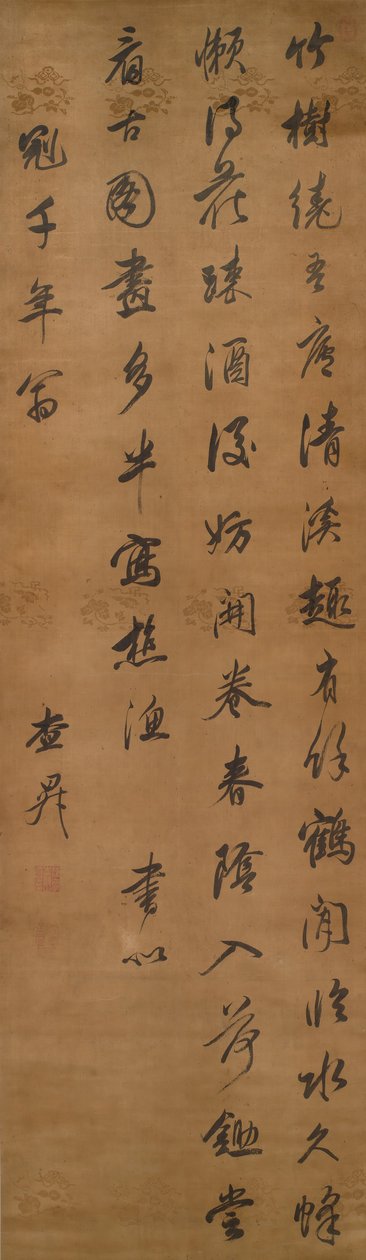 竹樹繞吾廬清深趣有餘鶴閒臨水久蜂
懶得花踈酒後妨開卷春陰入荷鋤嘗
看古圖畫多半寫樵漁 書似
冠千年翁 查昇